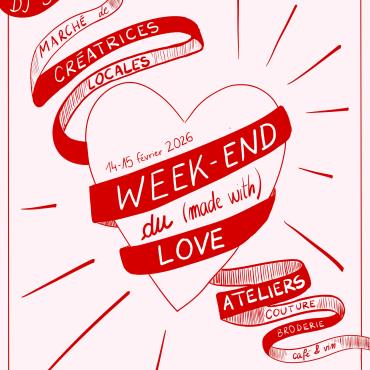 MARCHÉ de
CRÉATRICES
LOCALES
14-15 février 2026
WEEK-END
du (made with)
LOVE
ATELIERS
COUTURE
BRODERIE
café & vin